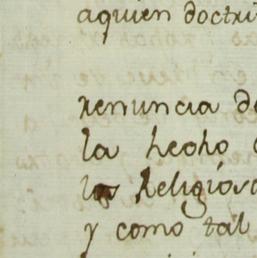 aquien doctri
renuncia d
la hecho
los Religios
y como tal